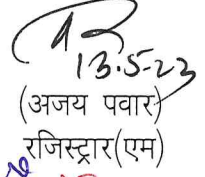 13.5-23
(अजय पवार)
रजिस्ट्रार(एम)